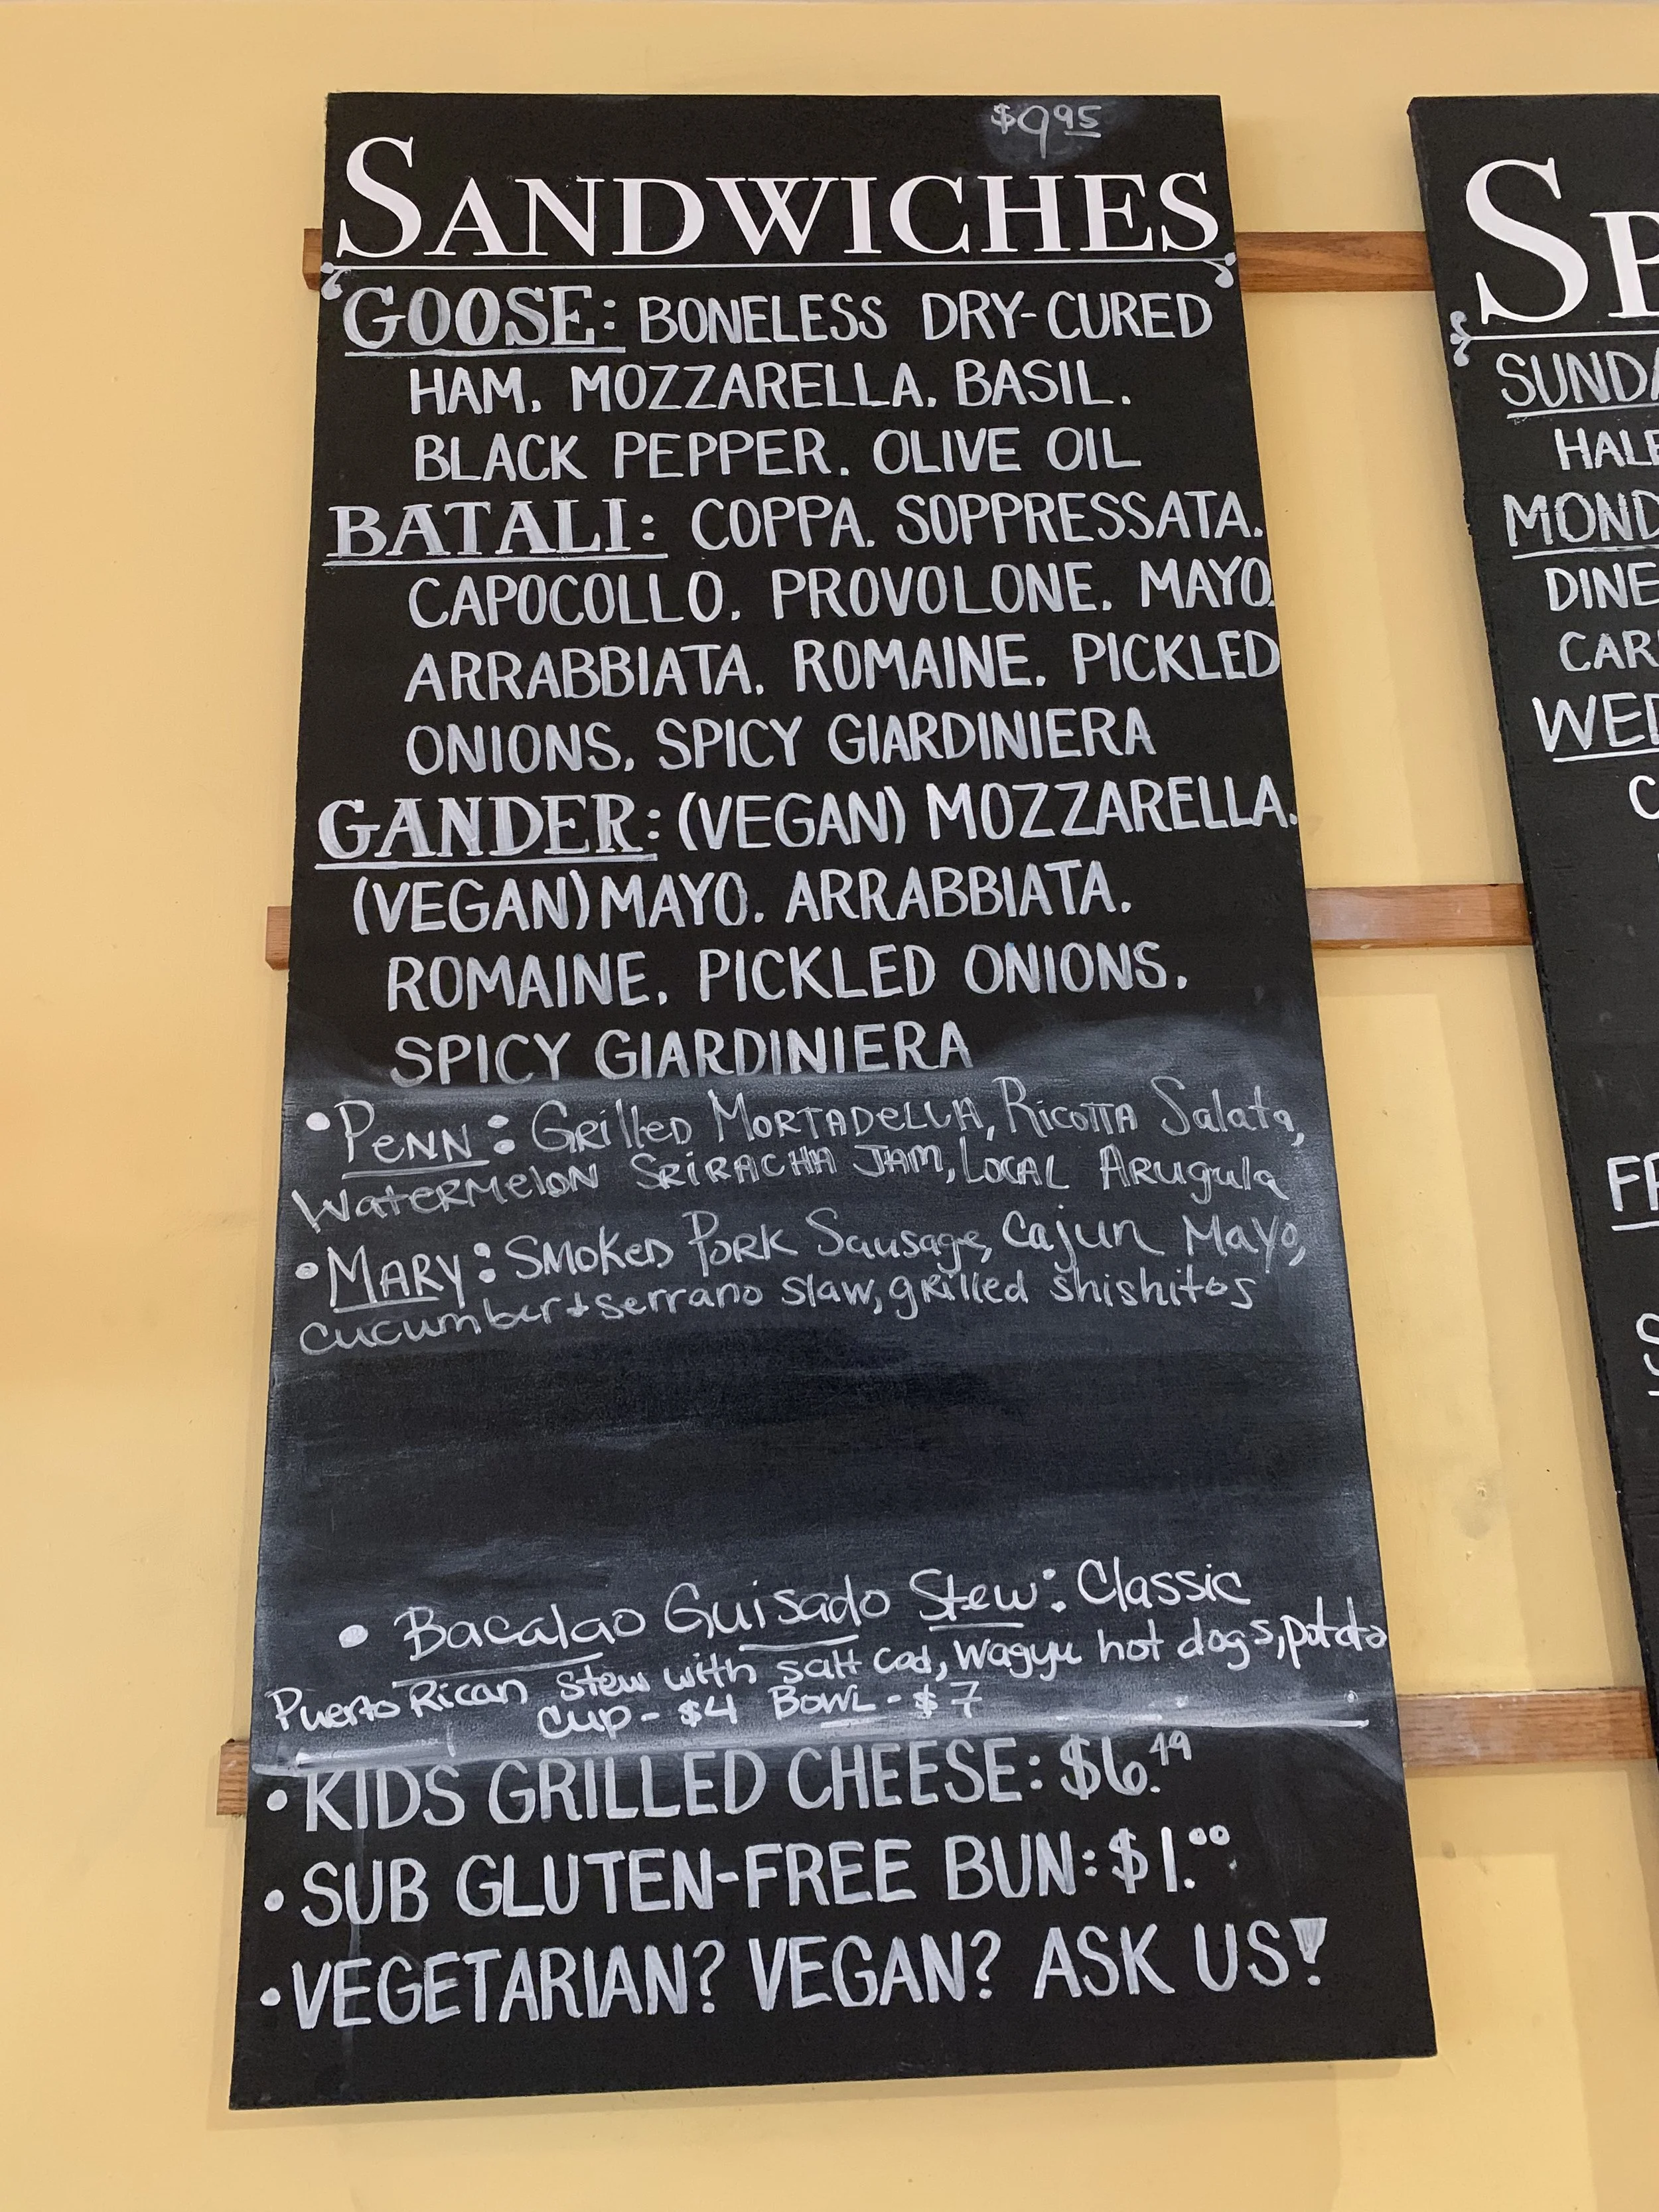 $9.95
SANDWICHES
GOOSE: BONELESS DRY-CURED
HAM, MOZZARELLA, BASIL,
BLACK PEPPER, OLIVE OIL
BATALI: COPPA, SOPPRESSATA,
CAPOCOLLO, PROVOLONE, MAYO,
ARRABBIATA, ROMAINE, PICKLED
ONIONS, SPICY GIARDINIERA
GANDER: (VEGAN) MOZZARELLA,
(VEGAN) MAYO, ARRABBIATA,
ROMAINE, PICKLED ONIONS,
SPICY GIARDINIERA
• PENN: GRILLED MORTADELLA, RICOTTA Salata,
WATERMELON SRIRACHA JAM, LOCAL ARugula
• MARY: SMOKED PORK Sausage, Cajun Mayo,
cucumber + serrano slaw, grilled shishitos
• Bacalao Guisado Stew: Classic
Puerto Rican stew with salt cod, wagyu hot dogs, potato
Cup - $4 BOWL - $7
• KIDS GRILLED CHEESE: $6.49
• SUB GLUTEN-FREE BUN: $1.00
• VEGETARIAN? VEGAN? ASK US!
SP
SUNDA
HALF
MOND
DINE
CAR
WED
C
FR
S